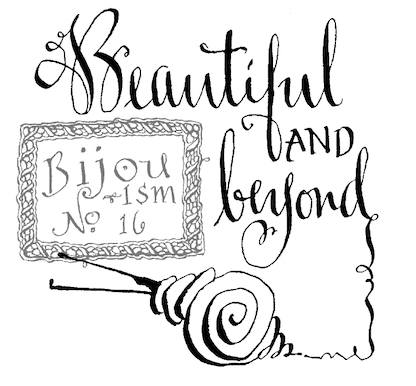 Beautiful
AND
beyond
Bijou
~ISM
No. 16